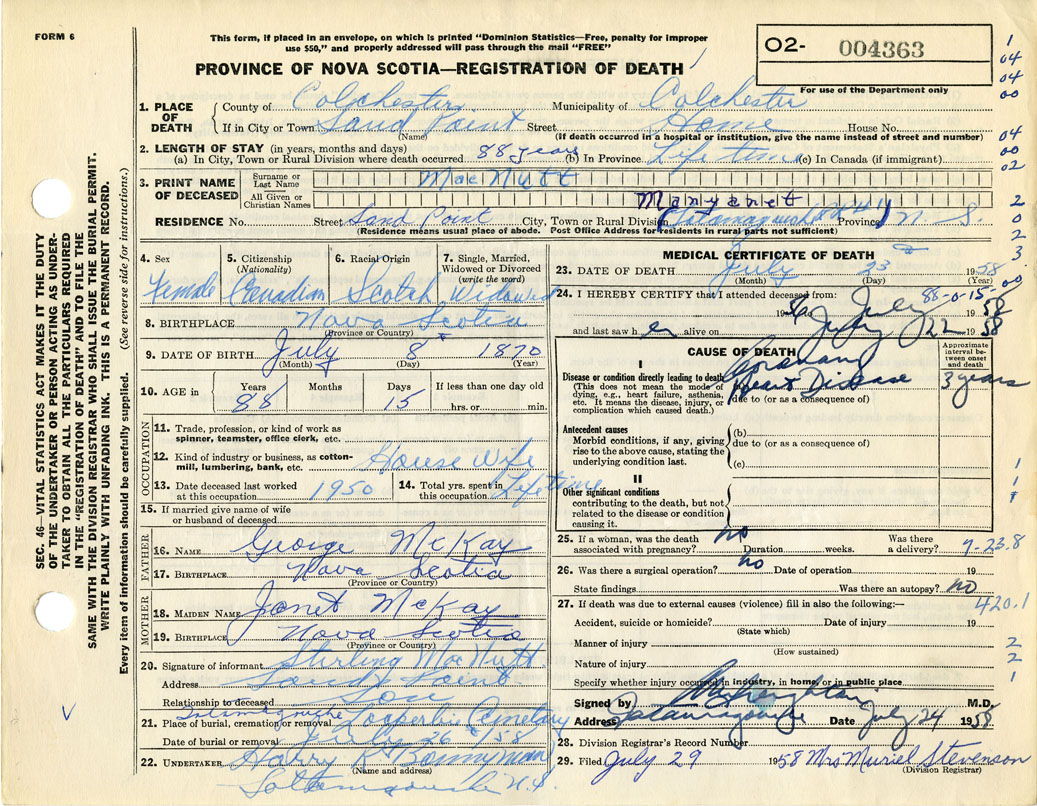 FORM 6
This form, if placed in an envelope, on which is printed "Dominion Statistics—Free, penalty for improper
use $50," and properly addressed will pass through the mail "FREE"
PROVINCE OF NOVA SCOTIA—REGISTRATION OF DEATH
O2- 004363
For use of the Department only
1. PLACE OF DEATH
County of Colchester Municipality of Colchester
If in City or Town Sand Point Street Home House No.
(Name) (If death occurred in a hospital or institution, give the name instead of street and number)
2. LENGTH OF STAY (in years, months and days)
(a) In City, Town or Rural Division where death occurred 88 years (b) In Province Life time (c) In Canada (if immigrant)
3. PRINT NAME OF DECEASED
Surname or Last Name MacNutt
All Given or Christian Names
RESIDENCE No. Street Sand Point City, Town or Rural Division Tatamagouche Province N. S.
(Residence means usual place of abode. Post Office Address for residents in rural parts not sufficient)
4. Sex Female
5. Citizenship (Nationality) Canadian
6. Racial Origin Scotch
7. Single, Married, Widowed or Divorced (write the word) Widowed
8. BIRTHPLACE Nova Scotia
(Province or Country)
9. DATE OF BIRTH July 8 1870
(Month) (Day) (Year)
10. AGE in Years 88 Months Days 15 If less than one day old
hrs. or min.
OCCUPATION
11. Trade, profession, or kind of work as
spinner, teamster, office clerk, etc.
12. Kind of industry or business, as cotton-
mill, lumbering, bank, etc. House Wife
13. Date deceased last worked at this occupation 1950
14. Total yrs. spent in this occupation Lifetime
15. If married give name of wife
or husband of deceased
FATHER
16. NAME George McKay
17. BIRTHPLACE Nova Scotia
(Province or Country)
MOTHER
18. MAIDEN NAME Janet McKay
19. BIRTHPLACE Nova Scotia
(Province or Country)
20. Signature of informant Stirling MacNutt
Address Sandy Point
Relationship to deceased Son
21. Place of burial, cremation or removal Tatamagouche Cemetery
Date of burial or removal July 26 /58
22. UNDERTAKER Harry R Bonnyman
(Name and address)
Tatamagouche N.S.
MEDICAL CERTIFICATE OF DEATH
23. DATE OF DEATH July 23 1958
(Month) (Day) (Year)
88-0-15
24. I HEREBY CERTIFY that I attended deceased from:
July 1958
and last saw her alive on July 22 1958
CAUSE OF DEATH
Approximate interval between onset and death
I
Disease or condition directly leading to death
(This does not mean the mode of
dying, e.g., heart failure, asthenia,
etc. It means the disease, injury, or
complication which caused death.)
Coronary
Heart Disease 3 years
due to (or as a consequence of)
Antecedent causes
Morbid conditions, if any, giving
rise to the above cause, stating the
underlying condition last.
(b)
due to (or as a consequence of)
(c)
II
Other significant conditions
contributing to the death, but not
related to the disease or condition
causing it.
25. If a woman, was the death
associated with pregnancy? no Duration weeks. Was there a delivery?
9-23.8
26. Was there a surgical operation? no Date of operation 19
State findings Was there an autopsy? no
27. If death was due to external causes (violence) fill in also the following:—
420.1
Accident, suicide or homicide? Date of injury 19
(State which)
Manner of injury
(How sustained)
Nature of injury
Specify whether injury occurred in industry, in home, or in public place
Signed by M.D.
Address Tatamagouche Date July 24 1958
28. Division Registrar's Record Number
29. Filed July 29 1958 Mrs Muriel Stevenson
(Division Registrar)
SEC. 46—VITAL STATISTICS ACT MAKES IT THE DUTY
OF THE UNDERTAKER OR PERSON ACTING AS UNDER-
TAKER TO OBTAIN ALL THE PARTICULARS REQUIRED
IN THE "REGISTRATION OF DEATH" AND TO FILE THE
SAME WITH THE DIVISION REGISTRAR WHO SHALL ISSUE THE BURIAL PERMIT.
WRITE PLAINLY WITH UNFADING INK. THIS IS A PERMANENT RECORD.
Every item of information should be carefully supplied. (See reverse side for instructions.)
1
04
04
00
04
00
02
2
0
2
3
00
1
1
2
2
1